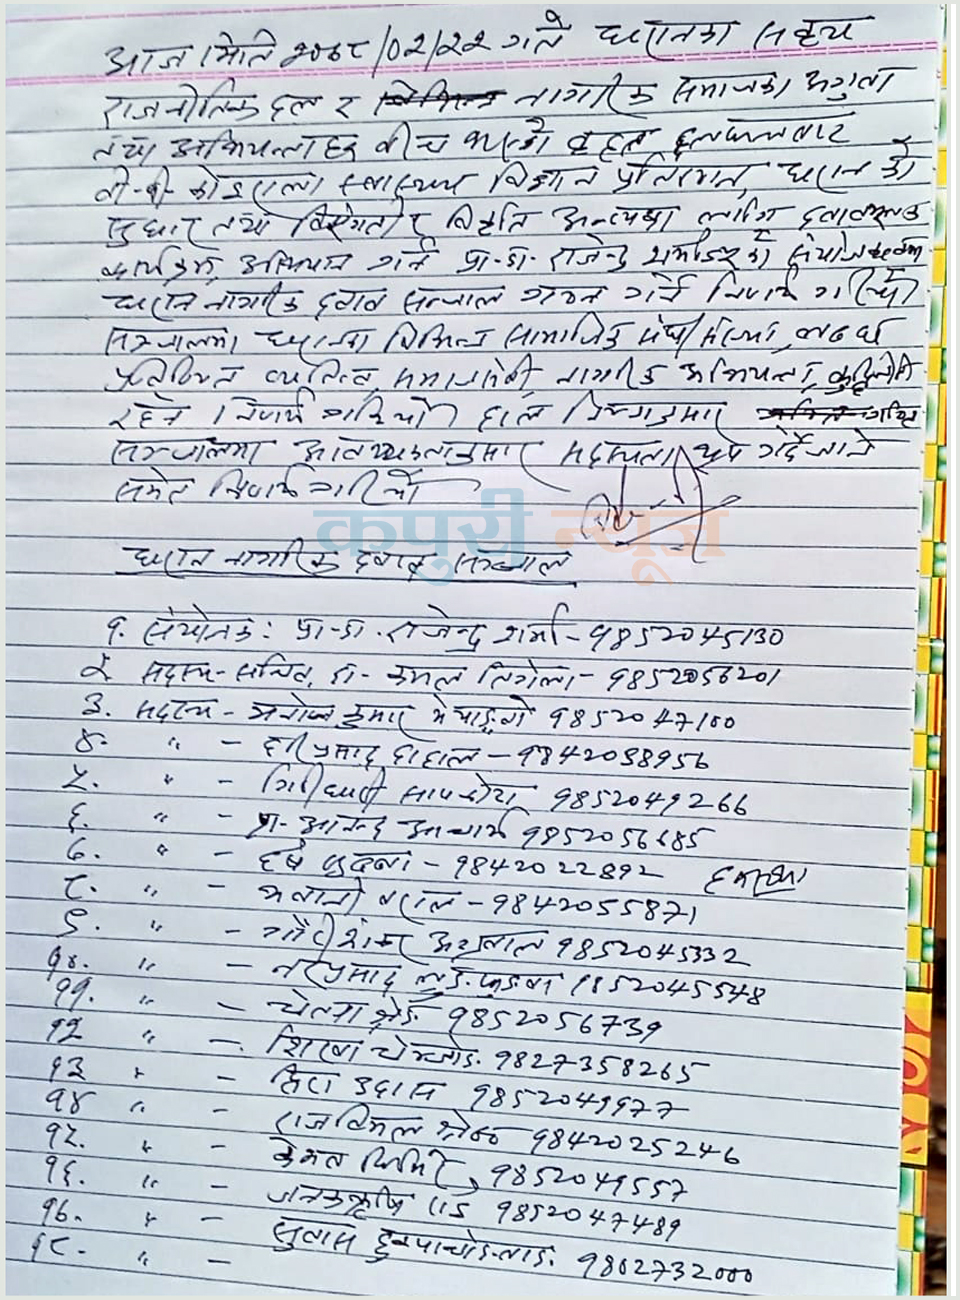 आज मिति २०७८/०२/२२ गते धरानका सक्रिय
राजनीतिक दल र नागरिक समाजका अगुवा
तथा अभियन्ताहरु बीच भएको बृहत छलफलबाट
बी.पी. कोइराला स्वास्थ्य विज्ञान प्रतिष्ठान, धरान को
सुधार तथा विसंगती र विकृति अन्त्यका लागि दवावमूलक
कार्यक्रम, अभियान गर्न प्रा.डा. राजेन्द्र शर्मा को संयोजकत्वमा
धरान नागरिक दवाव सञ्जाल गठन गर्ने निर्णय गरियो
सञ्जालमा धरानका विभिन्न सामाजिक संघ/संस्था,
प्रतिष्ठित व्यक्तित्व, समाजसेवी, नागरिक अभियन्ता,
रहने निर्णय गरियो। हाल निम्नानुसार
सञ्जालमा आवश्यकतानुसार सदस्यता थप गर्दै जाने
समेत निर्णय गरियो
कपुरी न्यूज
धरान नागरिक दवाव सञ्जाल
१. संयोजक: प्रा.डा. राजेन्द्र शर्मा - 9852045130
२. सदस्य-सचिव, डा. कमल गिरी - 9852056201
३. सदस्य - मनोज कुमार मेयाङ्बो 9852047100
४. " - हरि प्रसाद दाहाल - 9842038956
५. " - गिरीधारी सापकोटा 9852049266
६. " - प्रा. आनन्द आचार्य 9852056685
७. " - हर्ष सुब्बा - 9842022892
८. " - भवानी बराल - 9842055871
९. " - गौरी शंकर अग्रवाल 9852045332
१०. " - नरप्रसाद 9852045548
११. " - चेतना श्रेष्ठ 9852056739
१२ " - शिखा चेम्जोङ 9827358265
१३ " - मिरा उदास 9852049977
१४ " - राजविमल श्रेष्ठ 9842025246
१५. " - केमल घिमिरे, 9852049557
१६. " - जनकऋषि राई 9852047489
१७. " - सुवास 9802732000
१८. " -